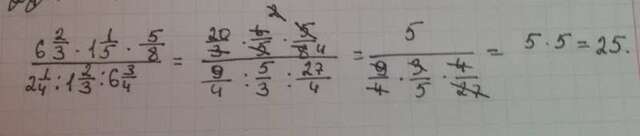 6 2/3 · 1 1/5 · 5/8 / 2 1/4 : 1 2/3 : 6 3/4 = 20/3 · 6/5 · 5/8 2 4 / 9/4 : 5/3 : 27/4 = 5 / 9/4 · 3/5 · 4/27 = 5 · 5 = 25.